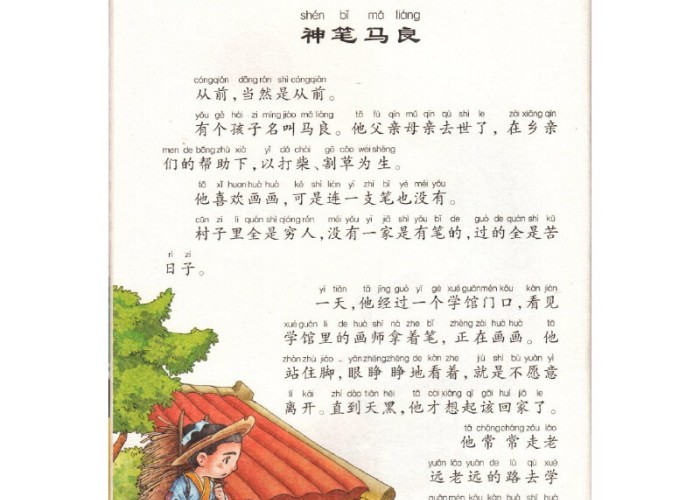 shén bǐ mǎ liáng
神笔马良
cóngqián dāngrán shì cóngqián
从前,当然是从前。
yǒu gè hái zi míngjiào mǎ liáng tā fù qīn mǔ qīn qù shì le zài xiāng qīn
有个孩子名叫马良。他父亲母亲去世了,在乡亲
men de bāngzhù xià yǐ dǎ chái gē cǎo wéi shēng
们的帮助下,以打柴、割草为生。
tā xǐ huan huà huà kě shì lián yì zhī bǐ yě méi yǒu
他喜欢画画,可是连一支笔也没有。
cūn zi lǐ quán shì qióng rén méi yǒu yì jiā shì yǒu bǐ de guò de quán shì kǔ
村子里全是穷人,没有一家是有笔的,过的全是苦
rì zi
日子。
yì tiān tā jīng guò yí gè xué guǎn mén kǒu kàn jiàn
一天,他经过一个学馆门口,看见
xué guǎn lǐ de huà shī ná zhe bǐ zhèng zài huà huà tā
学馆里的画师拿着笔,正在画画。他
zhàn zhù jiǎo yǎn zhēng zhēng de kàn zhe jiù shì bú yuàn yì
站住脚,眼睁睁地看着,就是不愿意
lí kāi zhí dào tiān hēi tā cái xiǎng qǐ gāi huí jiā le
离开。直到天黑,他才想起该回家了。
tā cháng cháng zǒu lǎo
他常常走老
yuǎn lǎo yuǎn de lù qù xué
远老远的路去学